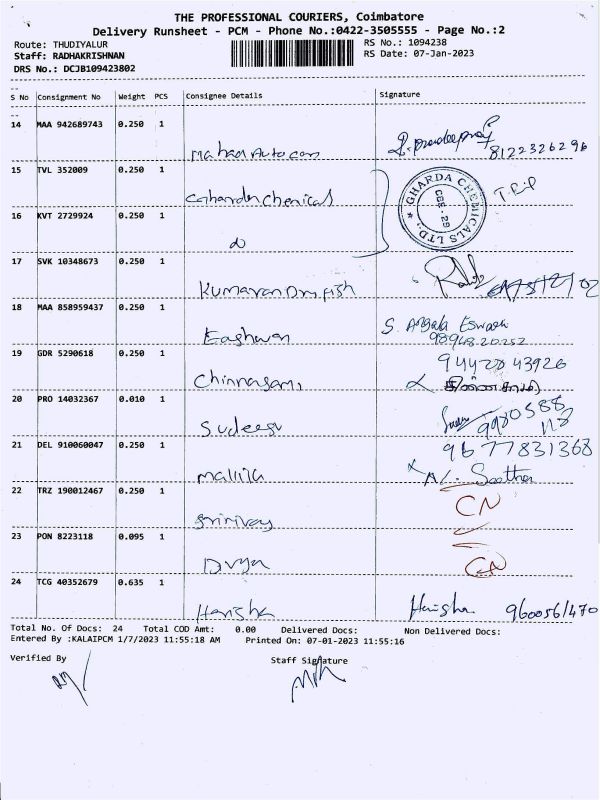 THE PROFESSIONAL COURIERS, Coimbatore
Delivery Runsheet - PCM - Phone No.:0422-3505555 - Page No.:2
Route: THUDIYALUR
RS No.: 1094238
Staff: RADHAKRISHNAN
RS Date: 07-Jan-2023
DRS No.: DCJB109423802
S No Consignment No Weight PCS Consignee Details Signature
14 MAA 942689743 0.250 1
8122326296
15 TVL 352009 0.250 1
Gharda Chemical
GHARDA CHEMICALS LTD., CBE-29
16 KVT 2729924 0.250 1
17 SVK 10348673 0.250 1
Kumaran Dry fish
18 MAA 858959437 0.250 1
Eashwari
S. Angala Eswari
98948 20252
19 GDR 5290618 0.250 1
Chinnasami
94428 43926
20 PRO 14032367 0.010 1
Sudeesv
9980588
118
21 DEL 910060047 0.250 1
Mallika
96 77831368
22 TRZ 190012467 0.250 1
CN
23 PON 8223118 0.095 1
Divya
CN
24 TCG 40352679 0.635 1
Harisha
Harisha. 9600561470
Total No. Of Docs: 24 Total COD Amt: 0.00 Delivered Docs: Non Delivered Docs:
Entered By :KALAIPCM 1/7/2023 11:55:18 AM Printed On: 07-01-2023 11:55:16
Verified By Staff Signature